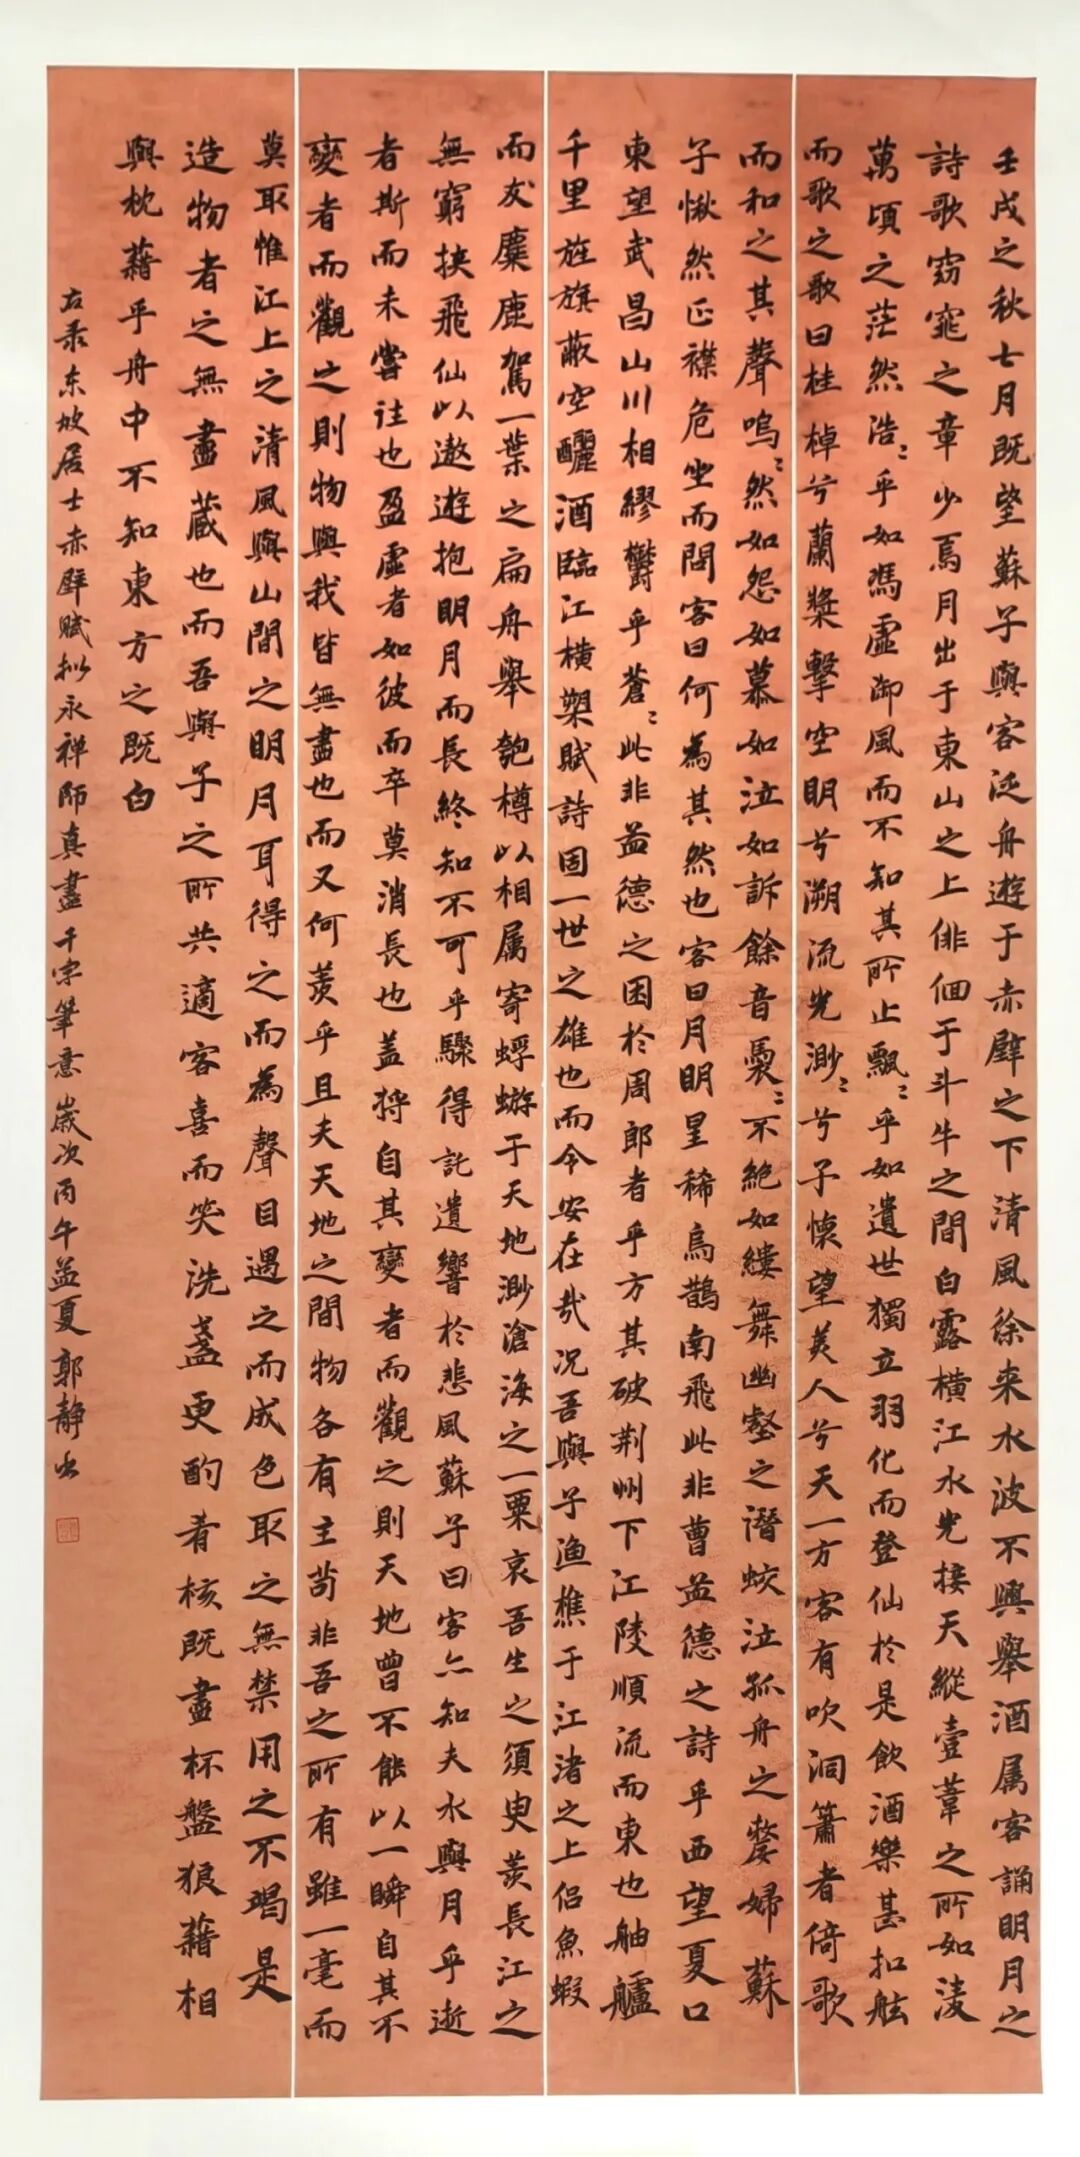 壬戌之秋七月既望蘇子與客泛舟遊于赤壁之下清風徐来水波不興舉酒属客誦明月之
詩歌窈窕之章少焉月出于東山之上俳佪于斗牛之間白露横江水光接天縱壹葦之所如淩
萬頃之茫然浩〻乎如馮虚御風而不知其所止飄〻乎如遺世獨立羽化而登仙於是飲酒樂甚扣舷
而歌之歌曰桂棹兮蘭槳擊空明兮溯流光渺〻兮予懷望美人兮天一方客有吹洞簫者倚歌
而和之其聲嗚〻然如怨如慕如泣如訴餘音裊〻不絶如縷舞幽壑之潛蛟泣孤舟之嫠婦蘇
子愀然正襟危坐而問客曰何為其然也客曰月明星稀烏鵲南飛此非曹孟德之詩乎西望夏口
東望武昌山川相繆欝乎蒼〻此非孟德之困於周郎者乎方其破荆州下江陵順流而東也舳艫
千里旌旗蔽空釃酒臨江横槊賦詩固一世之雄也而今安在哉况吾與子漁樵于江渚之上侣魚蝦
而友麋鹿駕一葉之扁舟舉匏樽以相属寄蜉蝣于天地渺滄海之一粟哀吾生之須臾羨長江之
無窮挟飛仙以遨遊抱明月而長終知不可乎驟得託遺響於悲風蘇子曰客亦知夫水與月乎逝
者斯而未嘗往也盈虚者如彼而卒莫消長也盖将自其變者而觀之則天地曾不能以一瞬自其不
變者而觀之則物與我皆無盡也而又何羨乎且夫天地之間物各有主苟非吾之所有雖一毫而
莫取惟江上之清風與山間之明月耳得之而為聲目遇之而成色取之無禁用之不竭是
造物者之無盡蔵也而吾與子之所共適客喜而笑洗盏更酌肴核既盡杯盤狼藉相
與枕藉乎舟中不知東方之既白
右录东坡居士赤壁賦拟永禅师真書千字筆意歲次丙午孟夏郭静书